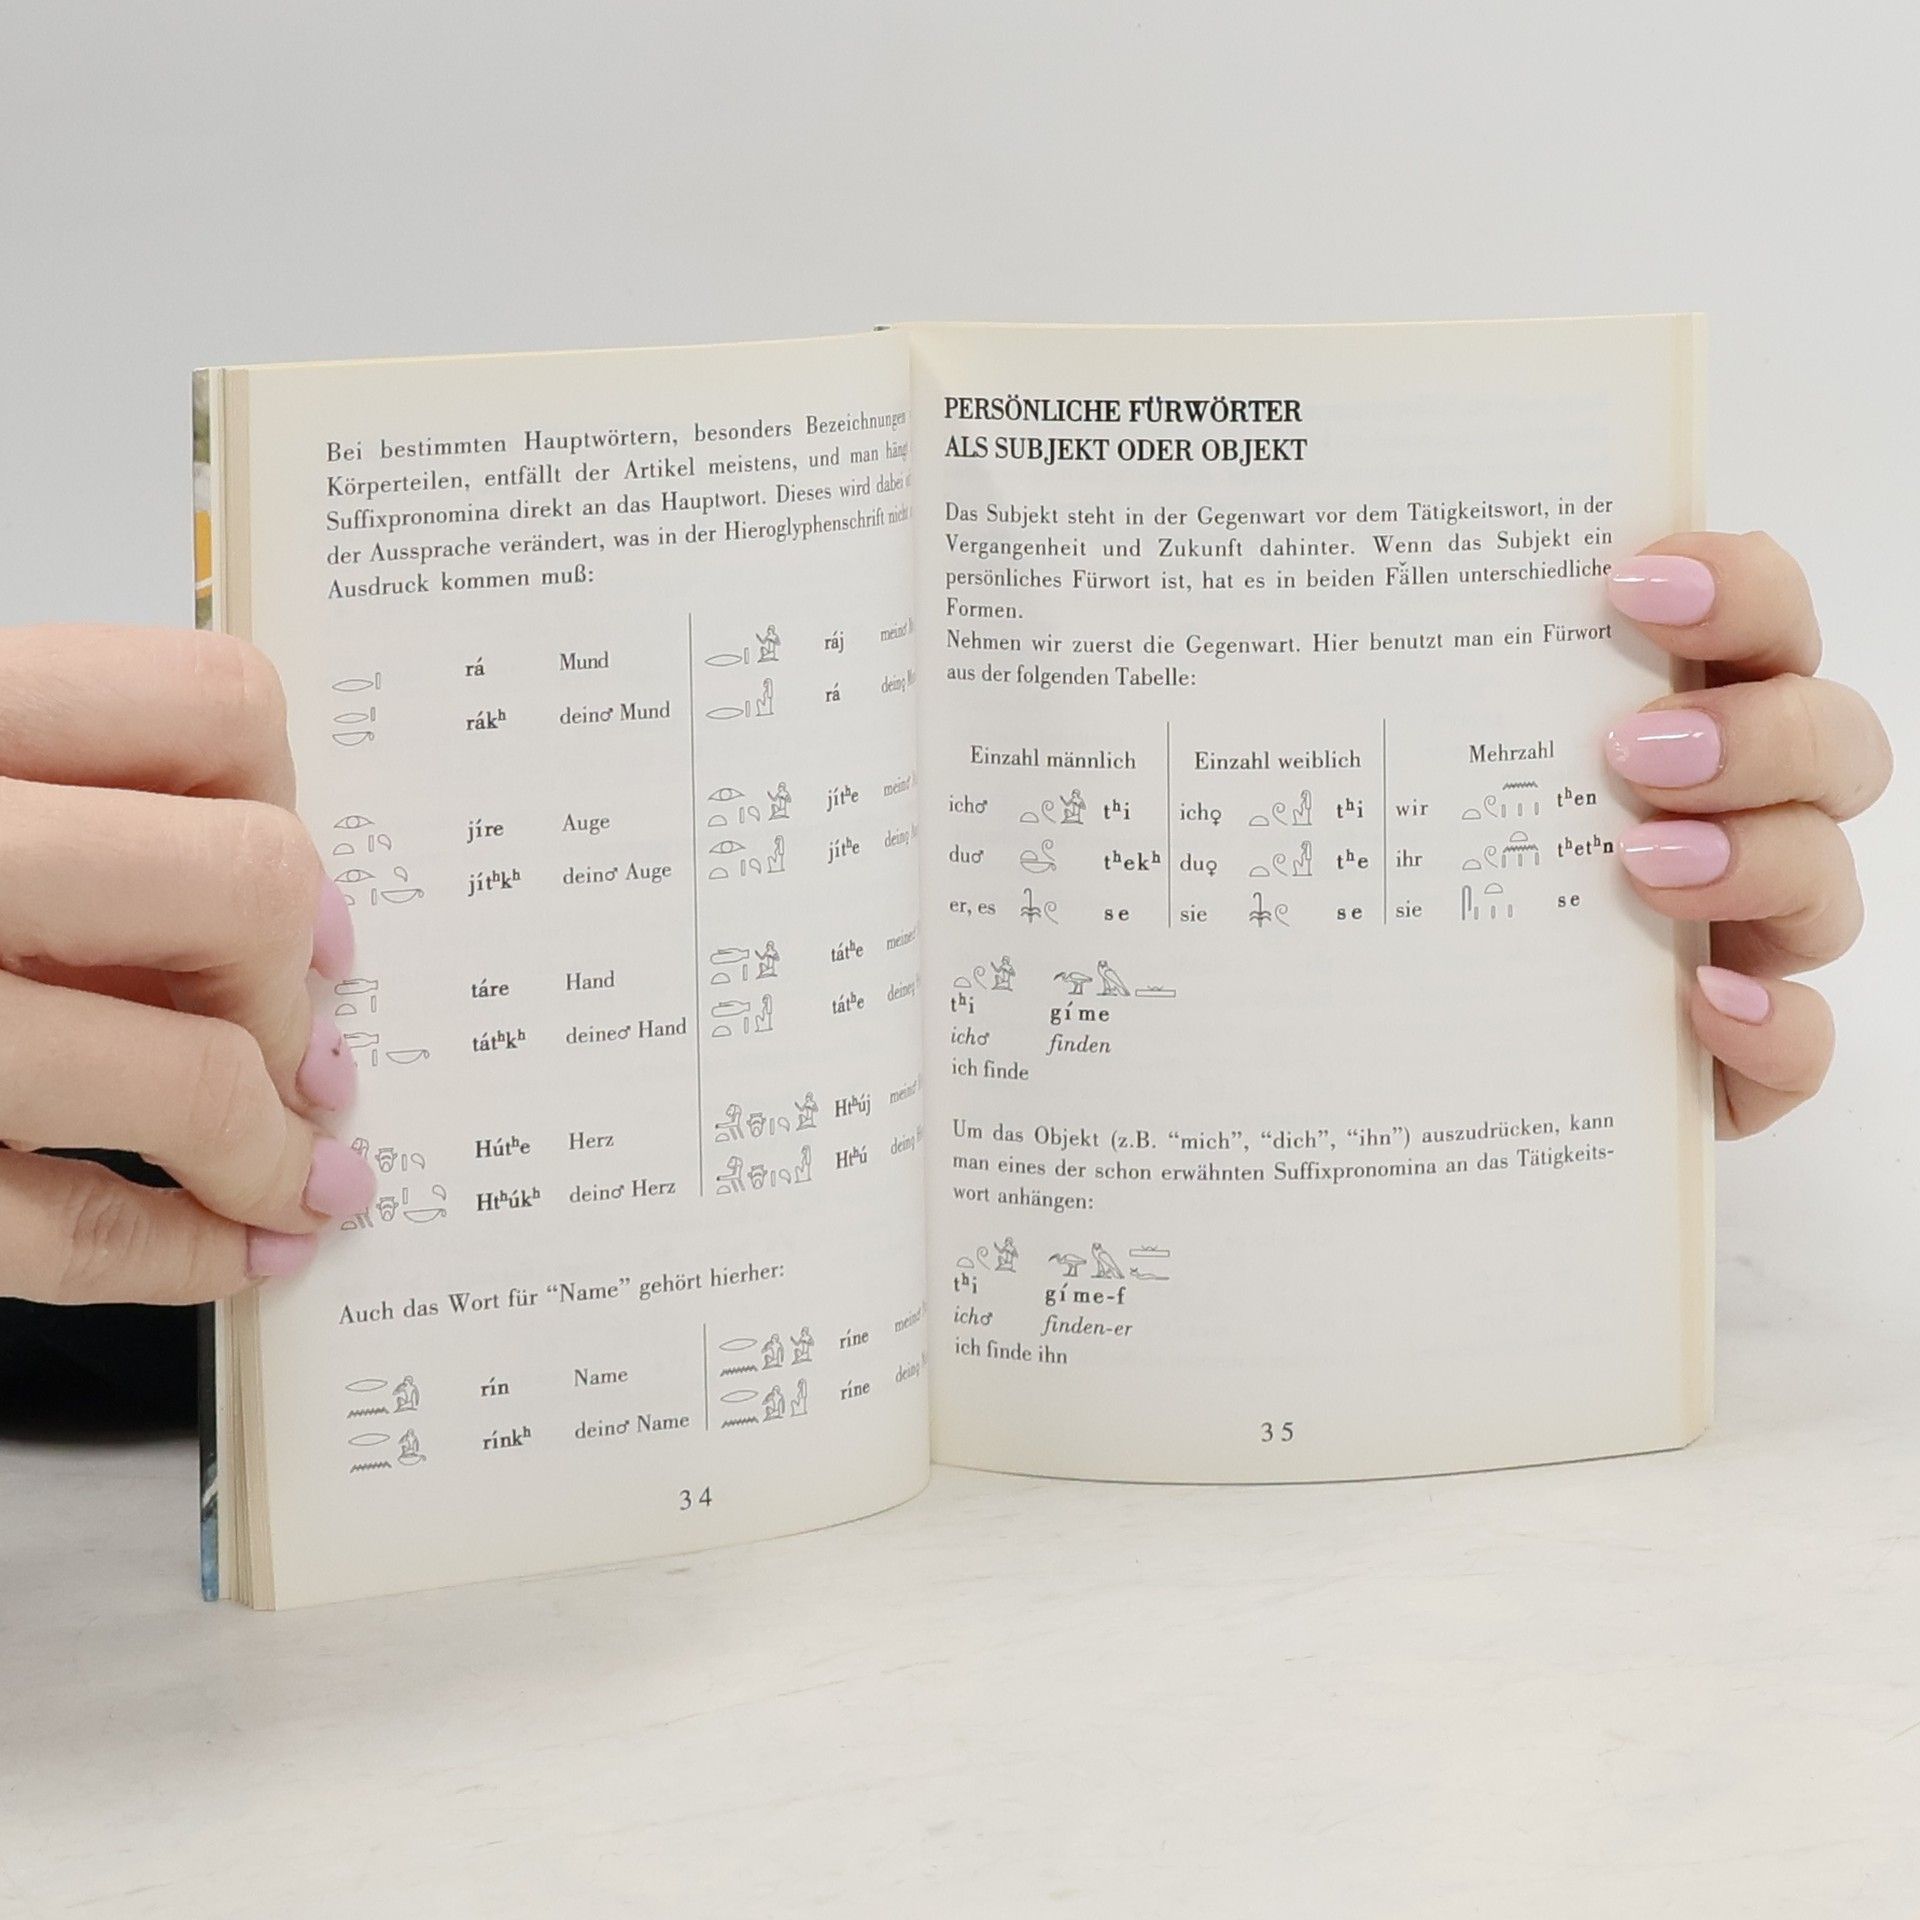 Bei bestimmten Hauptwörtern, besonders Bezeichnungen
Körperteilen, entfällt der Artikel meistens, und man hängt
Suffixpronomina direkt an das Hauptwort. Dieses wird dabei
der Aussprache verändert, was in der Hieroglyphenschrift nicht
Ausdruck kommen muß:
rá Mund ráj
rákʰ dein♂ Mund rá
jíre Auge jítʰe
jítʰkʰ dein♂ Auge jítʰe
táre Hand tátʰe
tátʰkʰ deine♂ Hand tátʰe
Hútʰe Herz Htʰúj
Htʰúkʰ dein♂ Herz Htʰú
Auch das Wort für “Name” gehört hierher:
rín Name ríne
rínkʰ dein♂ Name ríne
34
PERSÖNLICHE FÜRWÖRTER
ALS SUBJEKT ODER OBJEKT
Das Subjekt steht in der Gegenwart vor dem Tätigkeitswort, in der
Vergangenheit und Zukunft dahinter. Wenn das Subjekt ein
persönliches Fürwort ist, hat es in beiden Fällen unterschiedliche
Formen.
Nehmen wir zuerst die Gegenwart. Hier benutzt man ein Fürwort
aus der folgenden Tabelle:
Einzahl männlich Einzahl weiblich Mehrzahl
ich♂ tʰi ich♀ tʰi wir tʰen
du♂ tʰekʰ du♀ tʰe ihr tʰetʰn
er, es se sie se sie se
tʰi gíme
ich♂ finden
ich finde
Um das Objekt (z.B. “mich”, “dich”, “ihn”) auszudrücken, kann
man eines der schon erwähnten Suffixpronomina an das Tätigkeits-
wort anhängen:
tʰi gíme-f
ich♂ finden-er
ich finde ihn
35